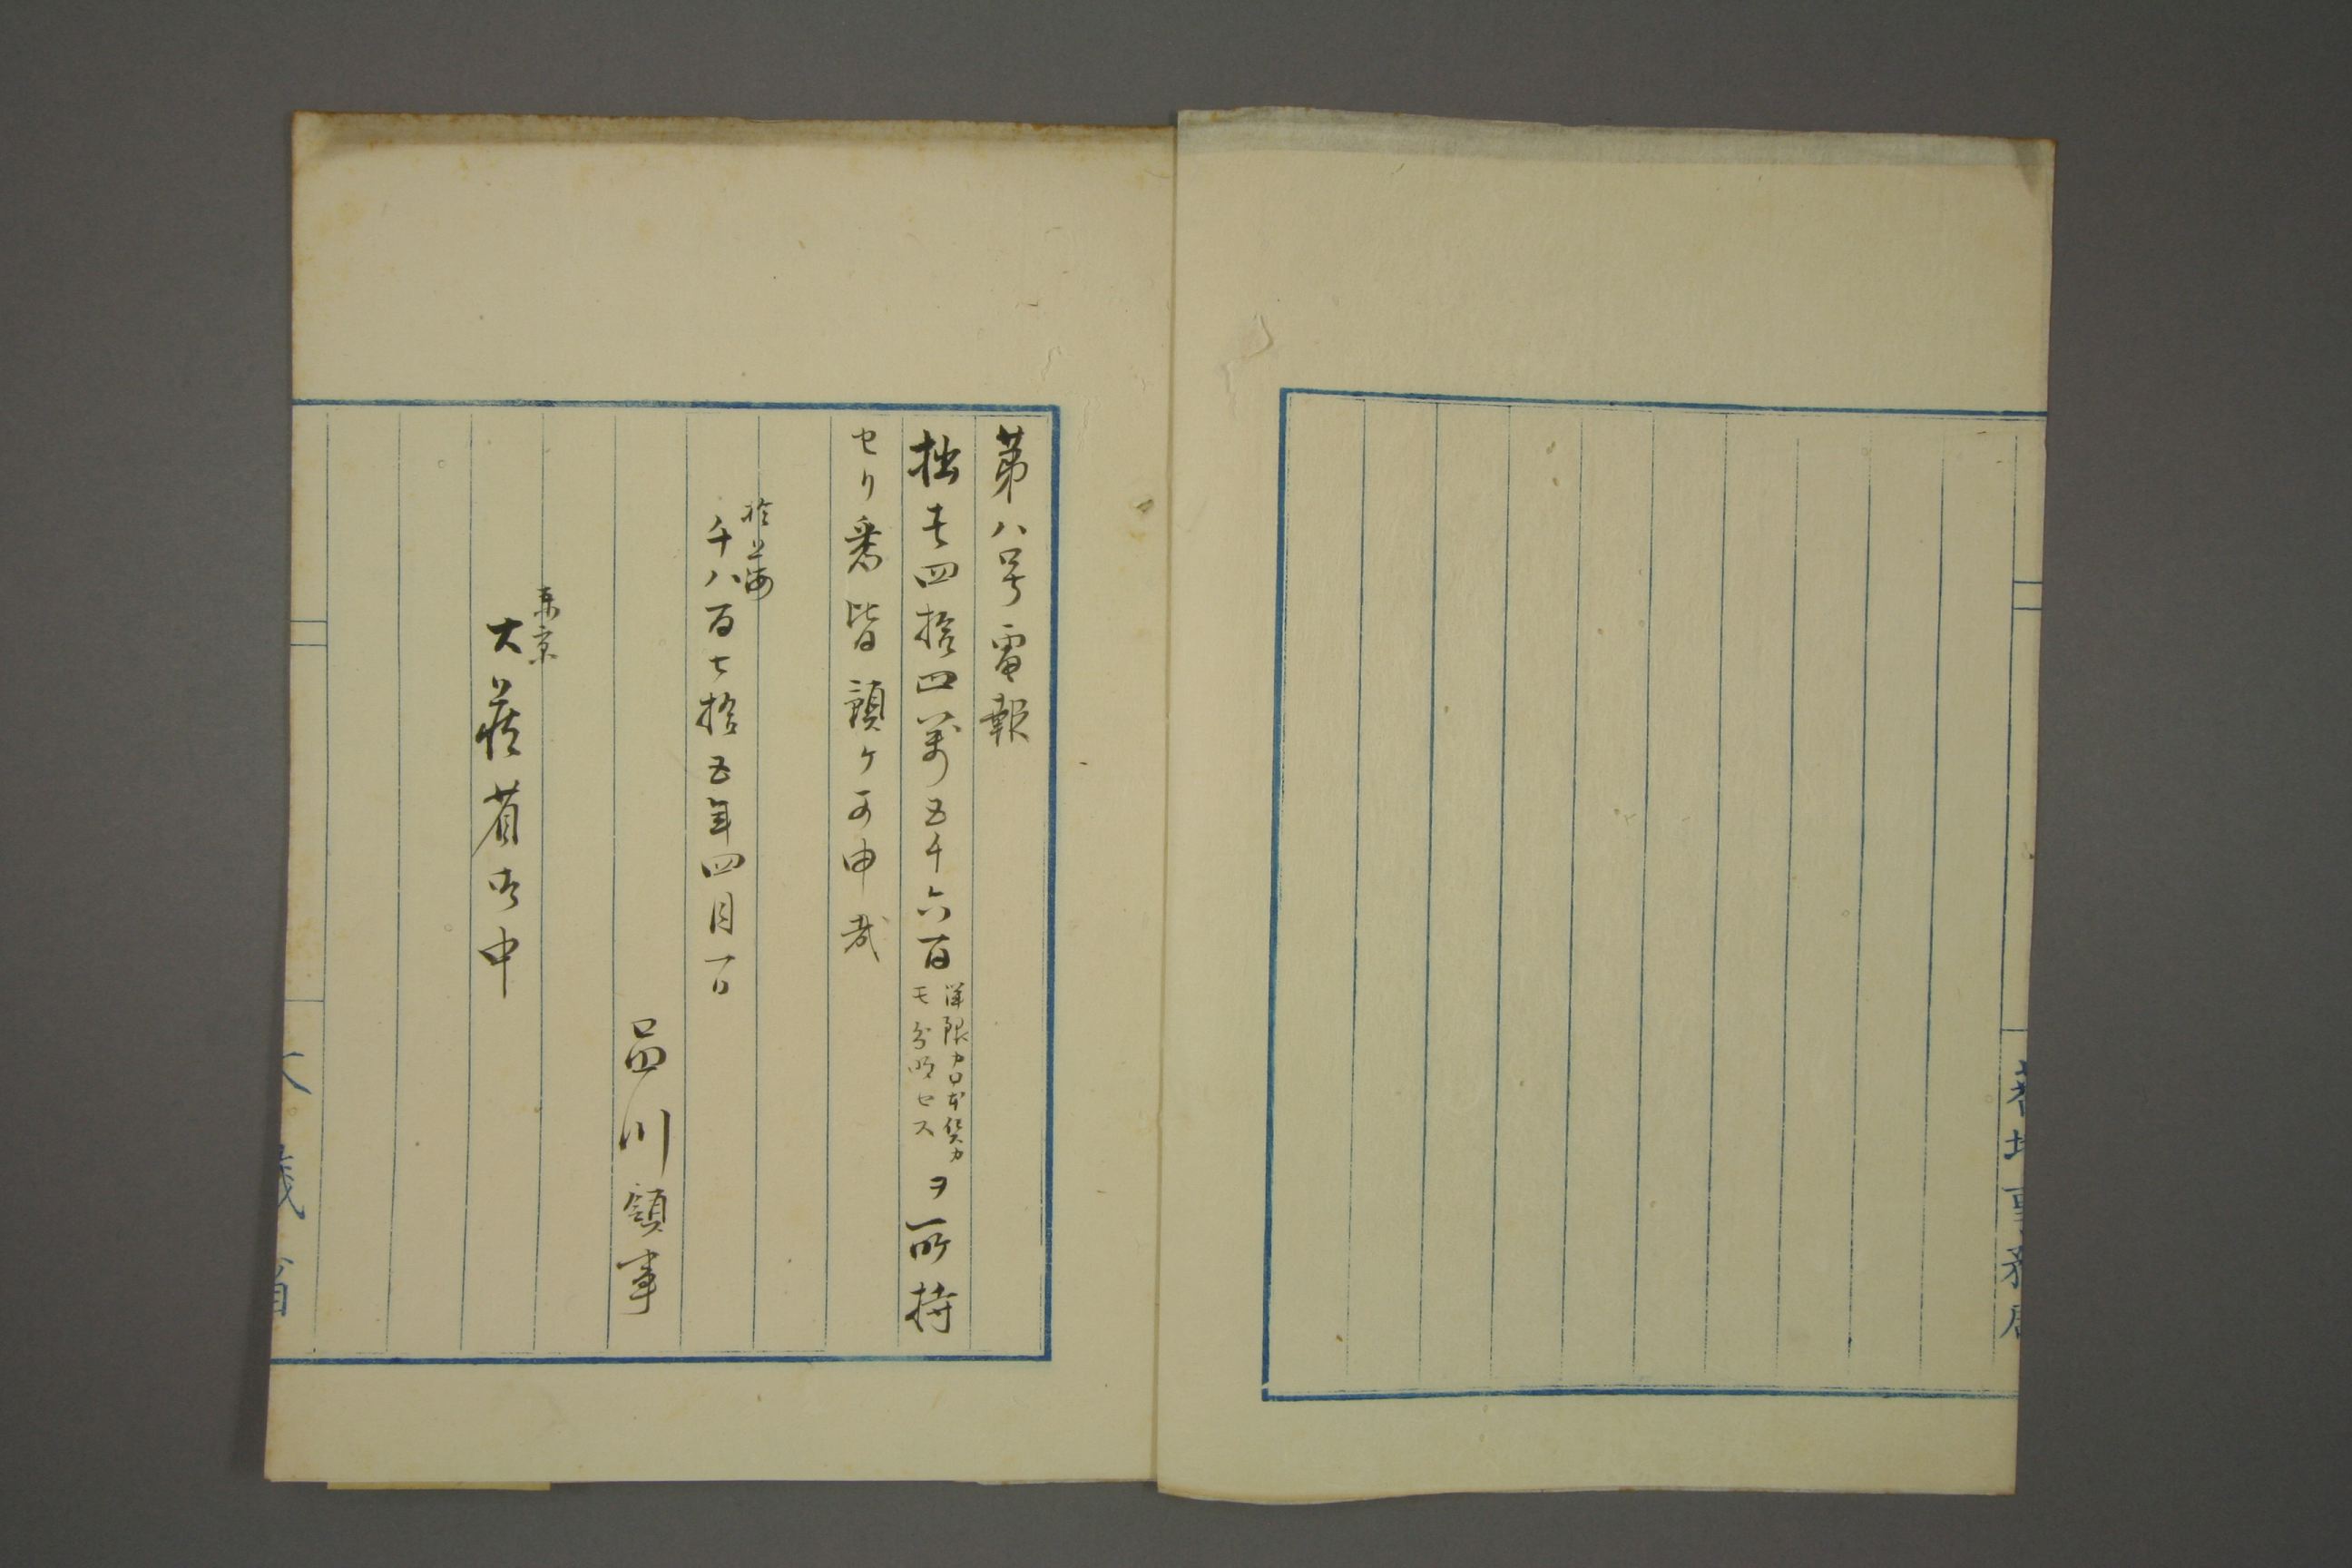 蕃地事務局
第八号電報
拙者四拾四萬五千六百洋銀カ日本貨カモ分明セスヲ所持
セリ悉皆預ケ可申哉
於上海
千八百七拾五年四月一日
品川領事
東京
大蔵省御中
大蔵省